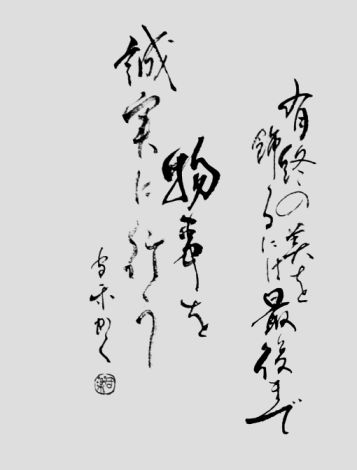 有終の美を
飾るには最後まで
物事を
誠実に行う